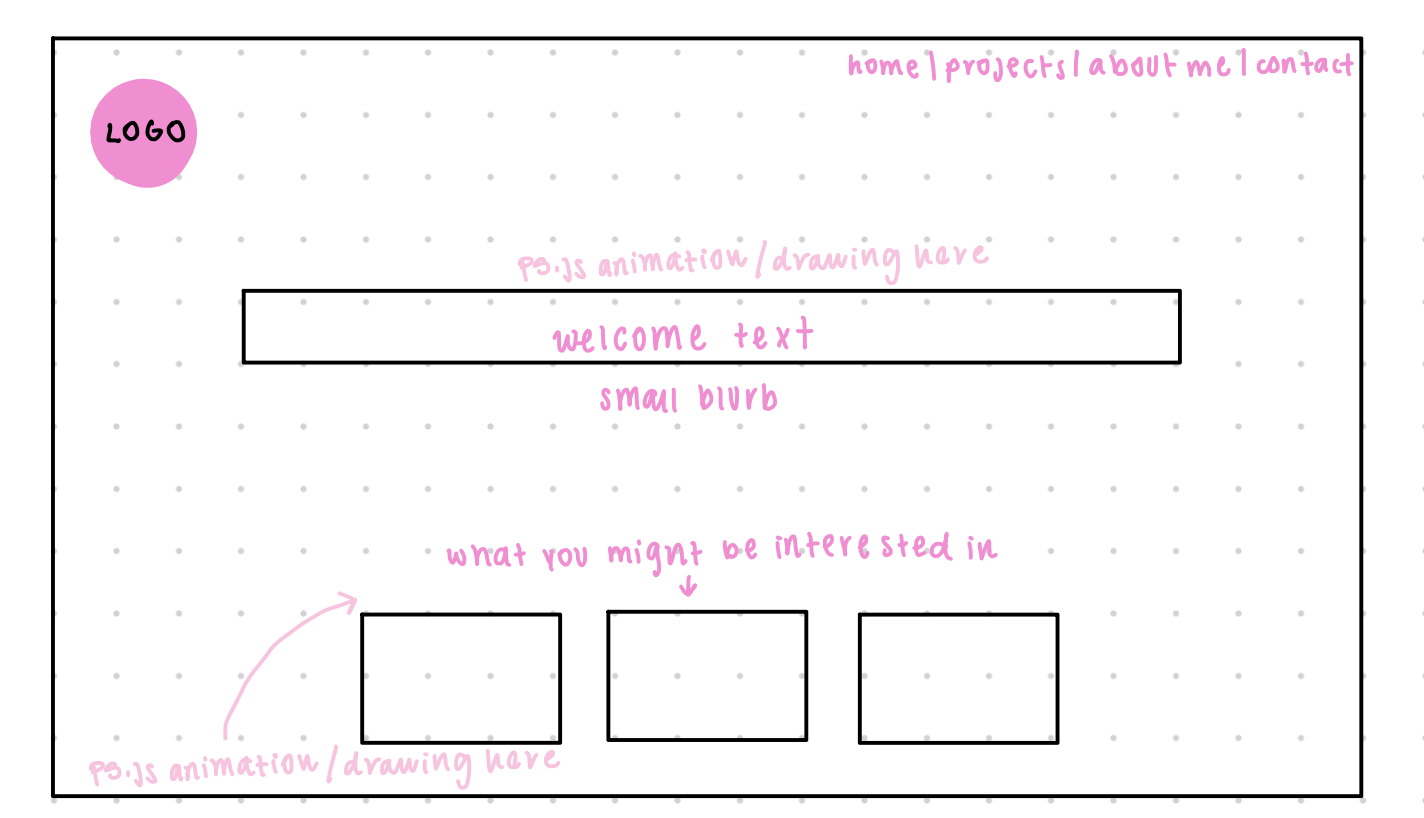 home | projects | about me | contact
LOGO
P5.js animation / drawing here
welcome text
small blurb
what you might be interested in
P5.js animation / drawing here